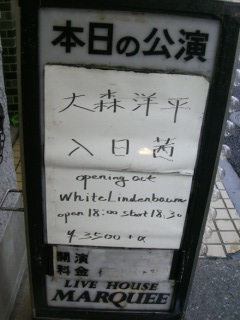 本日の公演
大森洋平
入日茜
opening act
White Lindenbaum
open 18:00 start 18:30
¥3500+α
開演
料金
LIVE HOUSE
MARQUEE